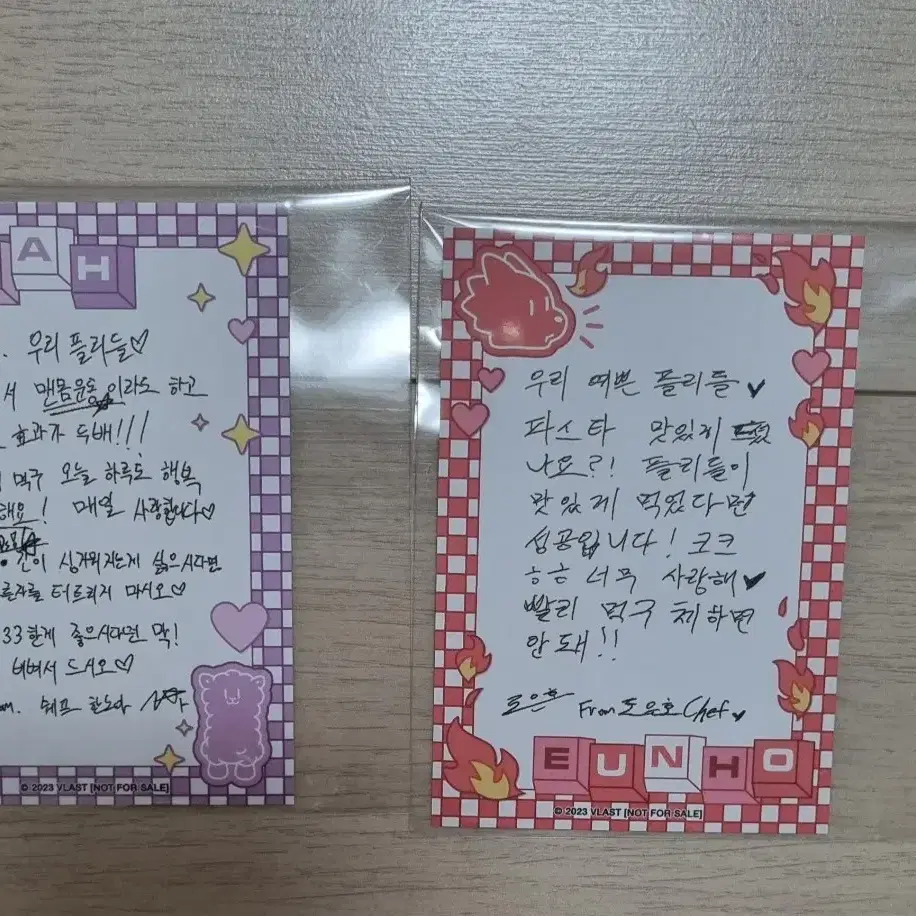 AH
우리 플리들♡
서 맨몸운동이라도 하고
효과가 두배!!!
먹구 오늘 하루도 행복
해요! 매열 사랑합니다♡
싱거워지는게 싫으시다면
른자를 터트리지 마시오♡
33한게 좋으시다면 막!
비벼서 드시오♡
쉐프 한노아
© 2023 VLAST [NOT FOR SALE]
우리 예쁜 플리들
파스타 맛있게
나요?! 플리들이
맛있게 먹었다면
성공입니다! 코크
ㅎㅎ 너무 사랑해♥
빨리 먹구 체하면
안돼!!
도은호 From 도은호 Chef
EUNHO
© 2023 VLAST [NOT FOR SALE]